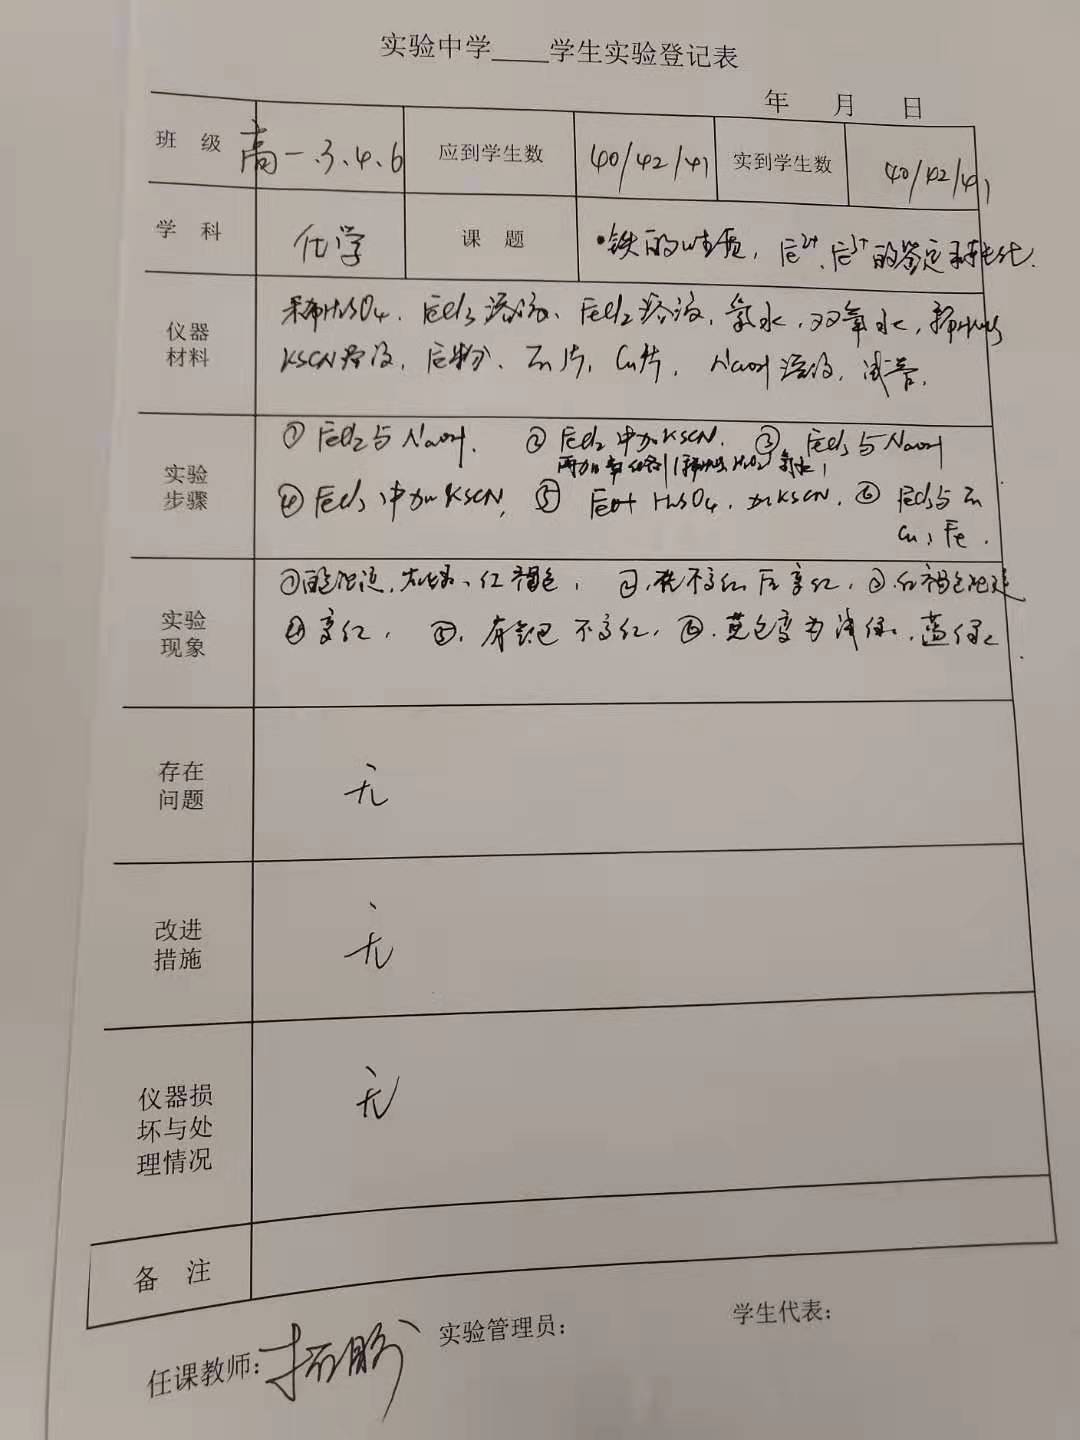 实验中学____学生实验登记表
年 月 日
班 级 高一.3.4.6 应到学生数 40/42/41 实到学生数 40/42/41
学 科 化学 课 题 ·铁的性质，Fe²⁺、Fe³⁺的鉴定和转化.
仪器材料
稀H₂SO₄、FeCl₃溶液、FeCl₂溶液，氯水，双氧水，稀HNO₃
KSCN溶液，Fe粉、Zn片，Cu片，NaOH溶液，试管.
实验步骤
①FeCl₂与NaOH. ②FeCl₂中加KSCN. ③FeCl₃与NaOH
再加氧化剂(稀HNO₃ H₂O₂ 氯水)
④FeCl₃中加KSCN, ⑤Fe+H₂SO₄.加KSCN. ⑥FeCl₃与Zn
Cu, Fe.
实验现象
①白色沉淀,灰绿、红褐色， ②.先不变红后变红，③.红褐色沉淀
④变红， ⑤.有气泡不变红， ⑥.黄色变为浅绿.，蓝绿.
存在问题
无
改进措施
无
仪器损坏与处理情况
无
备 注
任课教师： 实验管理员： 学生代表：